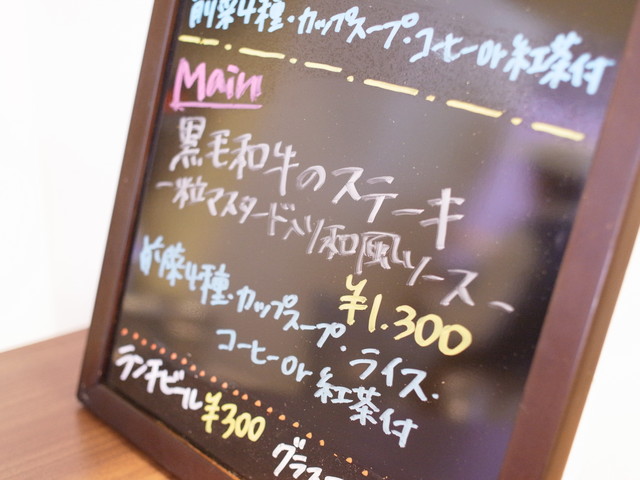 前菜4種・カップスープ・コーヒーor紅茶付
Main
黒毛和牛のステーキ
～粒マスタード入り和風ソース～
¥1.300
前菜4種・カップスープ・ライス・
コーヒーor紅茶付
ランチビール¥300
グラス